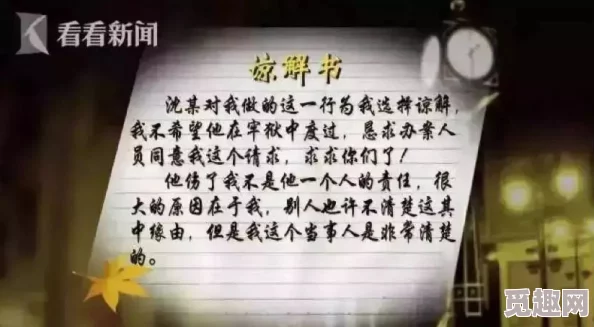 看看新闻
谅解书
沈某对我做的这一行为我选择谅解，
我不希望他在牢狱中度过，恳求办案人
员同意我这个请求，求求你们了！
他伤了我不是他一个人的责任，很
大的原因在于我，别人也许不清楚这其
中缘由，但是我这个当事人是非常清楚
的。
觅趣网